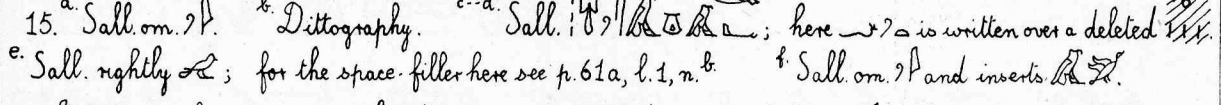 15. a. Sall. om. b. Dittography. c--d. Sall. ; here is written over a deleted .
e. Sall. rightly ; for the space-filler here see p. 61a, l. 1, n. b. f. Sall. om. and inserts .